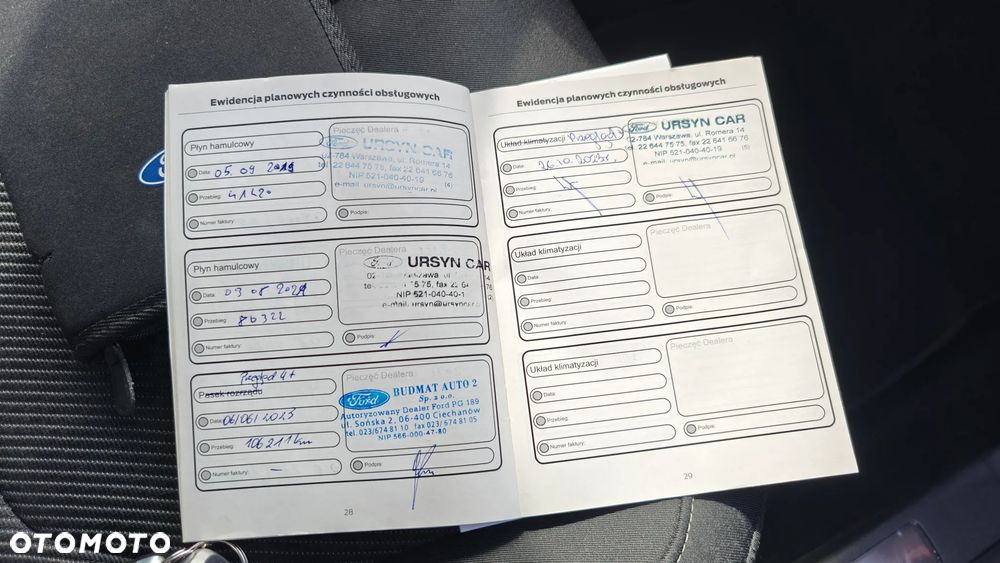 Ewidencja planowych czynności obsługowych
Płyn hamulcowy
Data: 05.09 2019
Przebieg: 41420
Numer faktury:
Pieczęć Dealera
Ford URSYN CAR
02-784 Warszawa, ul. Romera 14
tel. 22 644 75 75, fax 22 641 66 76
NIP 521-040-40-19
e-mail: ursyn@ursyncar.pl (4)
Podpis:
Płyn hamulcowy
Data: 03 08 2021
Przebieg: 80322
Numer faktury:
Pieczęć Dealera
Ford URSYN CAR
NIP 521-040-40-1
Podpis:
Przegląd 4+
Pasek rozrządu
Data: 06/06/2023
Przebieg: 106211km
Numer faktury: –
Pieczęć Dealera
Ford BUDMAT AUTO 2
Sp. z o.o.
Autoryzowany Dealer Ford PG 189
ul. Sońska 2, 06-400 Ciechanów
tel. 023/674 81 10 fax 023/ 674 81 05
NIP 566-000-47-80
Podpis:
28
Ewidencja planowych czynności obsługowych
Układ klimatyzacji Przegląd
Data:
Przebieg:
Numer faktury:
Ford URSYN CAR
02-784 Warszawa, ul. Romera 14
tel. 22 644 75 75, fax 22 641 66 76
NIP 521-040-40-19 (5)
Podpis:
Układ klimatyzacji
Data:
Przebieg:
Numer faktury:
Pieczęć Dealera
Podpis:
Układ klimatyzacji
Data:
Przebieg:
Numer faktury:
Pieczęć Dealera
Podpis:
29
OTOMOTO